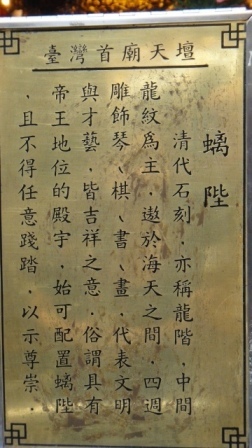 臺灣首廟天壇
螭陛
清代石刻﹐亦稱龍階﹐中間
龍紋為主﹐遨於海天之間﹐四週
雕飾琴、棋、書、畫﹐代表文明
與才藝﹐皆吉祥之意﹐俗謂具有
帝王地位的殿宇﹐始可配置螭陛
﹐且不得任意踐踏﹐以示尊崇。